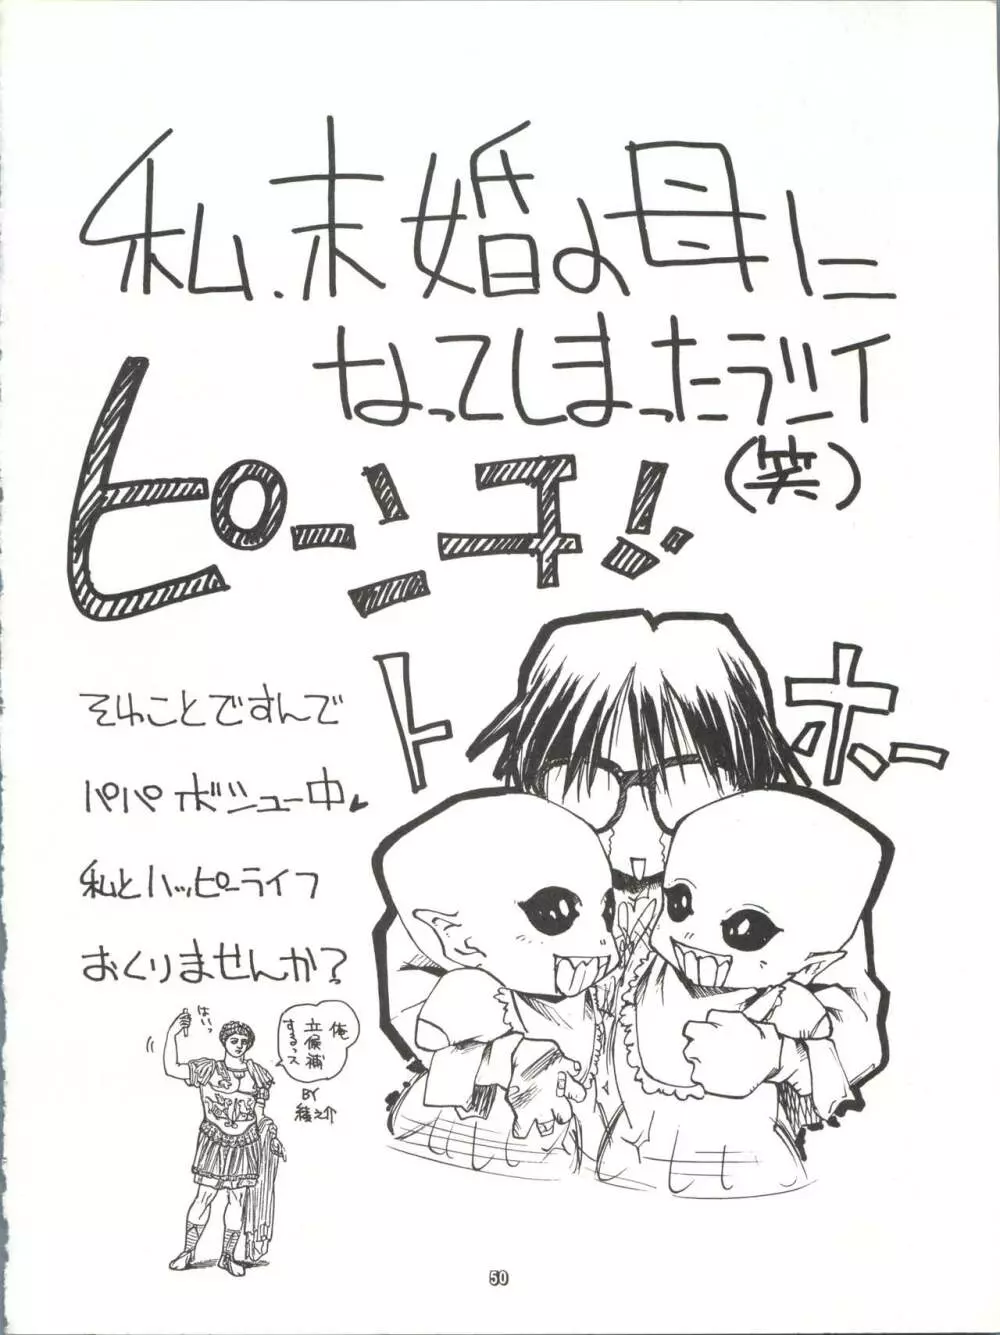 私、未婚の母に
なってしまったラシイ
(笑)
ピーンチ!
トホー
そわことですんで
パパボシュー中
私とハッピーライフ
おくりませんか?
はいっ
俺
立候補
するっス
BY
綾之介
50